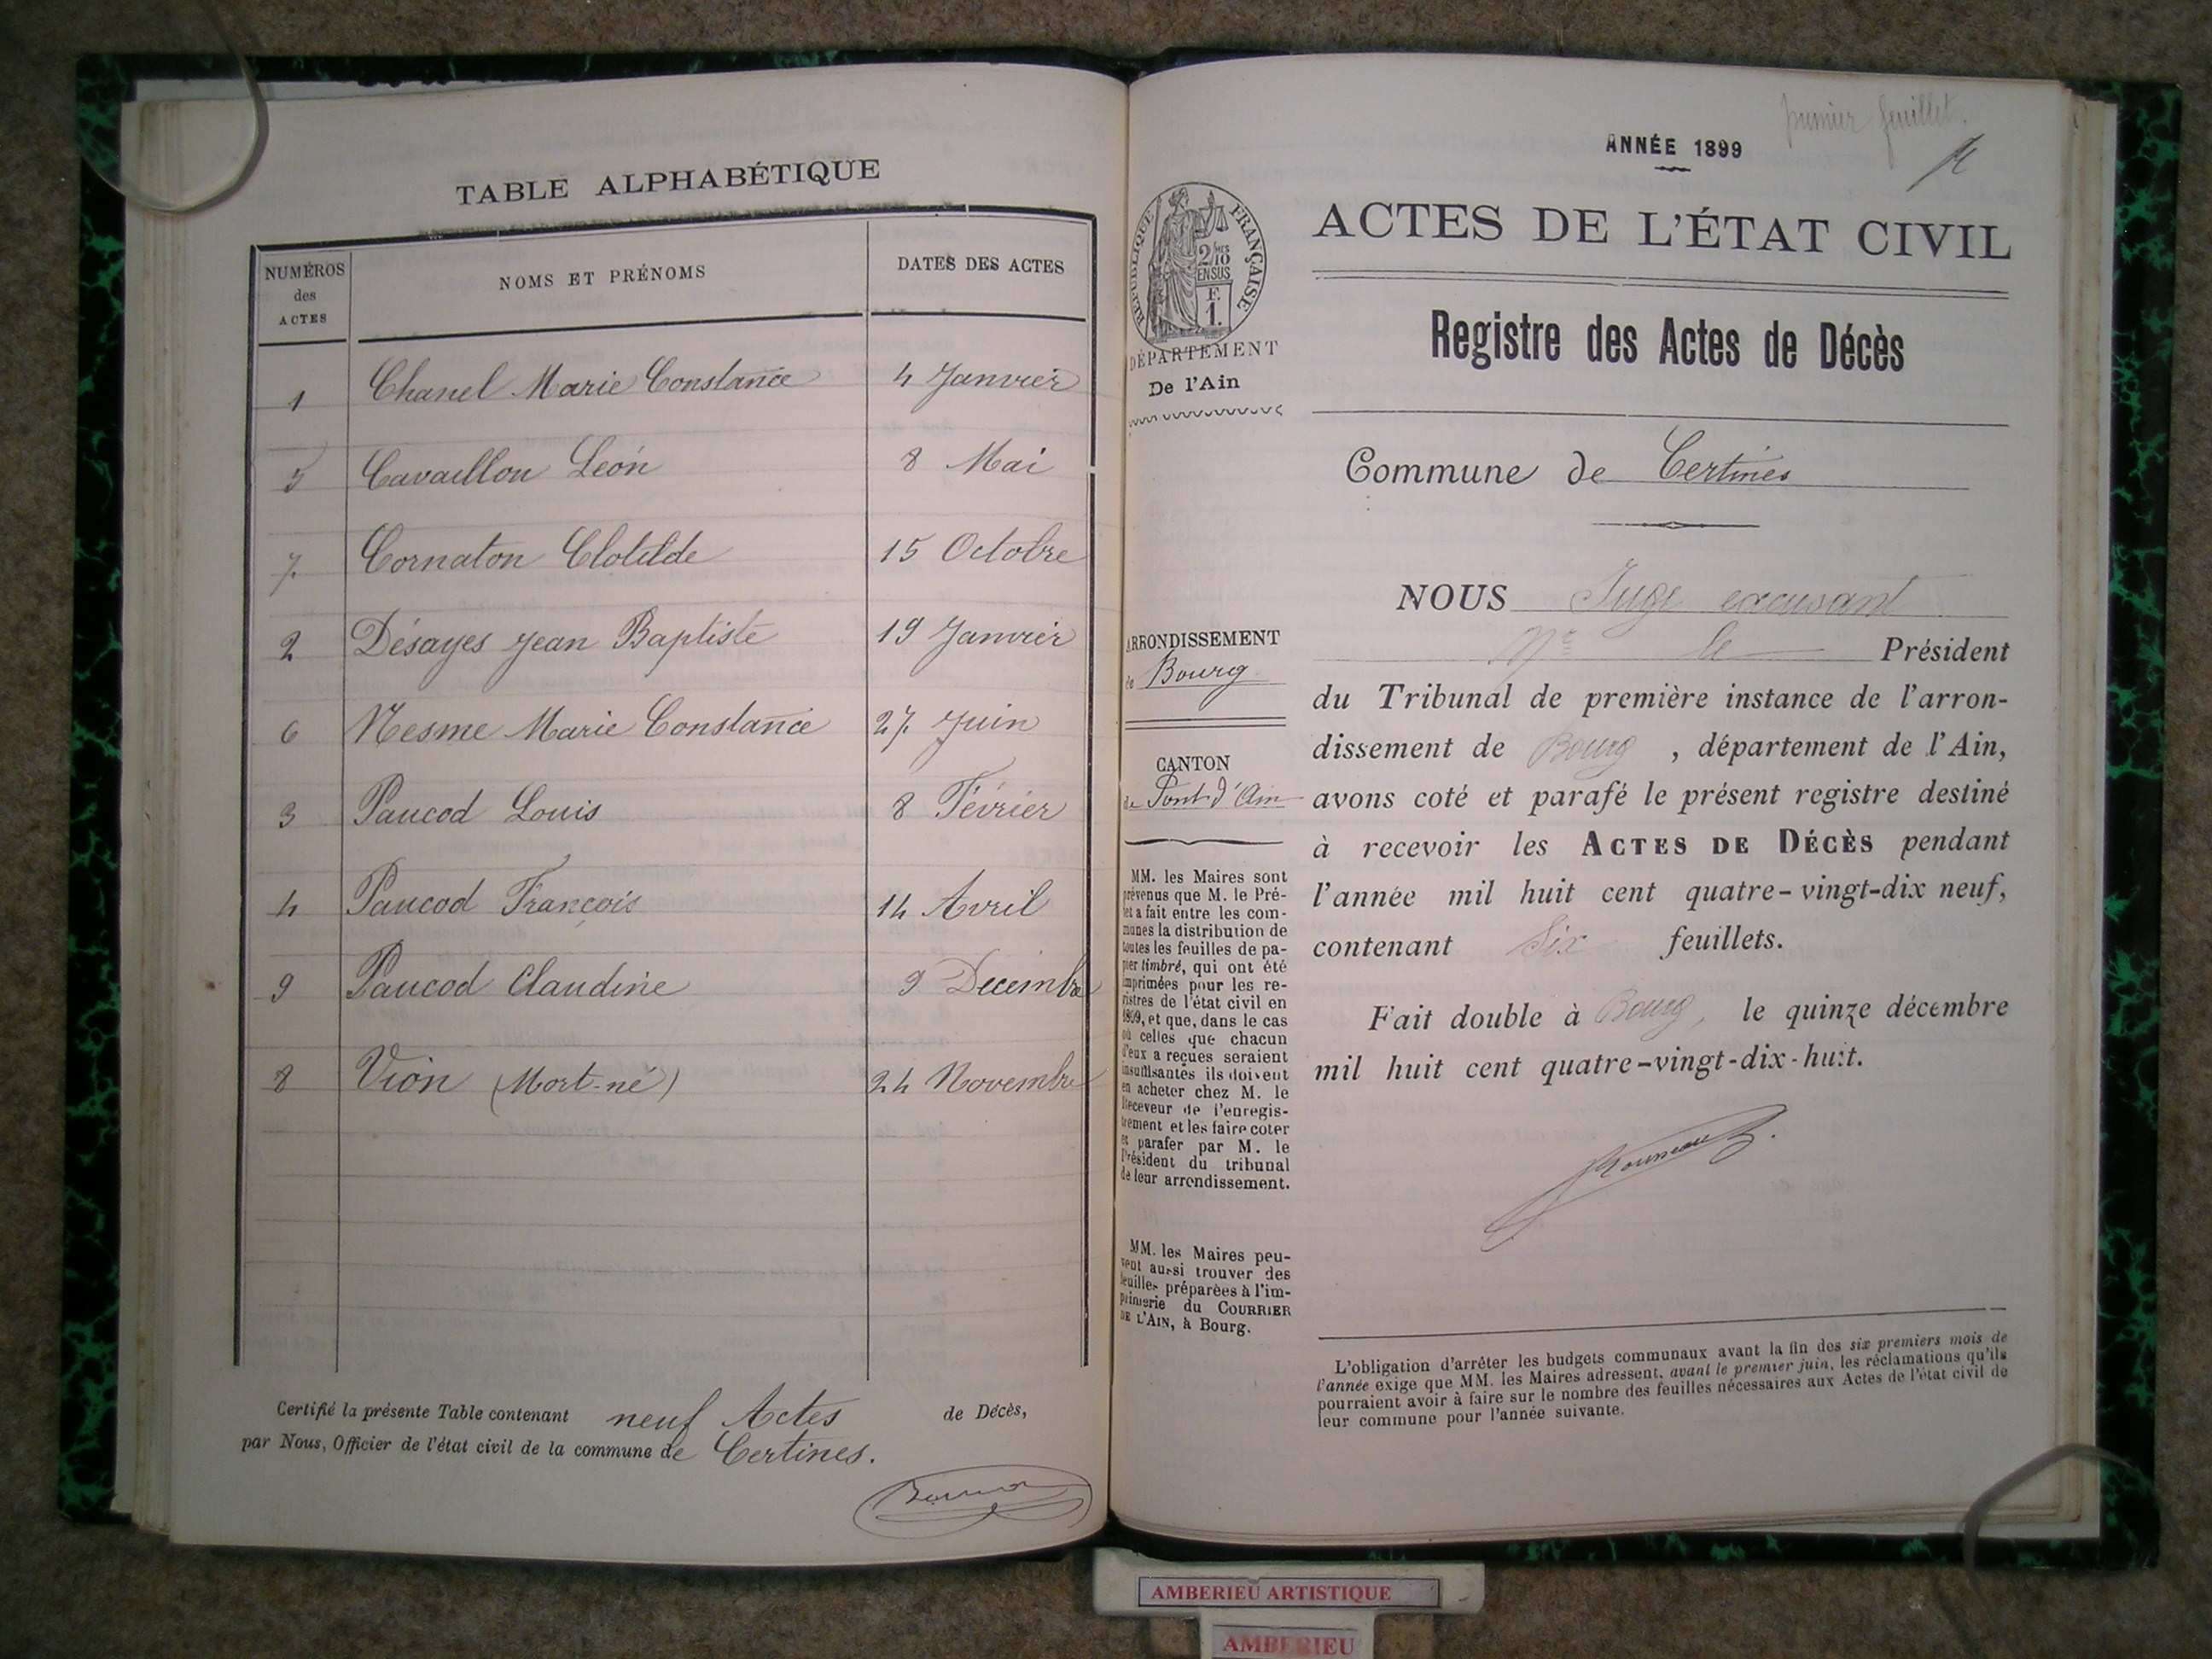 TABLE ALPHABÉTIQUE
NUMÉROS
des
ACTES
NOMS ET PRÉNOMS
DATES DES ACTES
1 Chanel Marie Constance 4 Janvier
5 Cavaillon Léon 8 Mai
7 Cornaton Clotilde 15 Octobre
2 Désayes Jean Baptiste 19 Janvier
6 Nesme Marie Constance 27 Juin
3 Paucod Louis 8 Février
4 Paucod François 14 Avril
9 Paucod Claudine 9 Decembre
8 Vion (Mort-né) 24 Novembre
Certifié la présente Table contenant neuf Actes de Décès,
par Nous, Officier de l'état civil de la commune de Certines.
premier feuillet.
ANNÉE 1899
RÉPUBLIQUE FRANÇAISE
2/10
EN SUS
F.
1.
DÉPARTEMENT
De l'Ain
ARRONDISSEMENT
de Bourg
CANTON
de Pont d'Ain
MM. les Maires sont
prévenus que M. le Pré-
fet a fait entre les com-
munes la distribution de
toutes les feuilles de pa-
pier timbré, qui ont été
imprimées pour les re-
gistres de l'état civil en
1899, et que, dans le cas
où celles que chacun
d'eux a reçues seraient
insuffisantes ils doivent
en acheter chez M. le
Receveur de l'enregis-
trement et les faire coter
et parafer par M. le
Président du tribunal
de leur arrondissement.
MM. les Maires peu-
vent aussi trouver des
feuilles préparées à l'im-
primerie du COURRIER
DE L'AIN, à Bourg.
ACTES DE L'ÉTAT CIVIL
Registre des Actes de Décès
Commune de Certines
NOUS Juge excusant
Mr le Président
du Tribunal de première instance de l'arron-
dissement de Bourg, département de l'Ain,
avons coté et parafé le présent registre destiné
à recevoir les ACTES DE DÉCÈS pendant
l'année mil huit cent quatre-vingt-dix neuf,
contenant Six feuillets.
Fait double à Bourg, le quinze décembre
mil huit cent quatre-vingt-dix-huit.
L'obligation d'arrêter les budgets communaux avant la fin des six premiers mois de
l'année exige que MM. les Maires adressent, avant le premier juin, les réclamations qu'ils
pourraient avoir à faire sur le nombre des feuilles nécessaires aux Actes de l'état civil de
leur commune pour l'année suivante.
AMBERIEU ARTISTIQUE
AMBERIEU